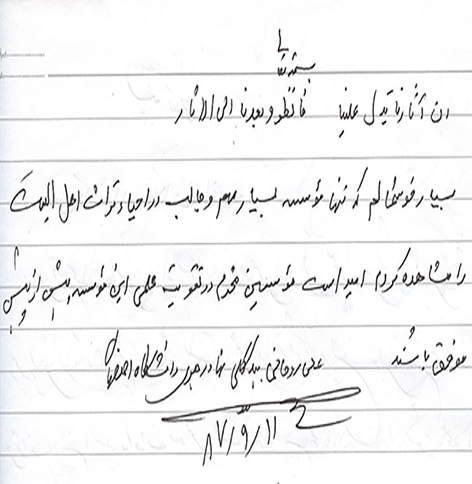 بسمه تعالی
ان آثارنا تدل علینا فانظروا بعدنا الی الاثار
بسیار خوشحالم که تنها مؤسسه بسیار مهم و جالب در احیاء تراث اهل البیت
را مشاهده کردم امید است مؤسسین محترم در تقویت علمی این مؤسسه بیش از پیش
موفق باشند
علی روحانی نهاد رهبری دانشگاه اصفهان
۸۷/۹/۱۱